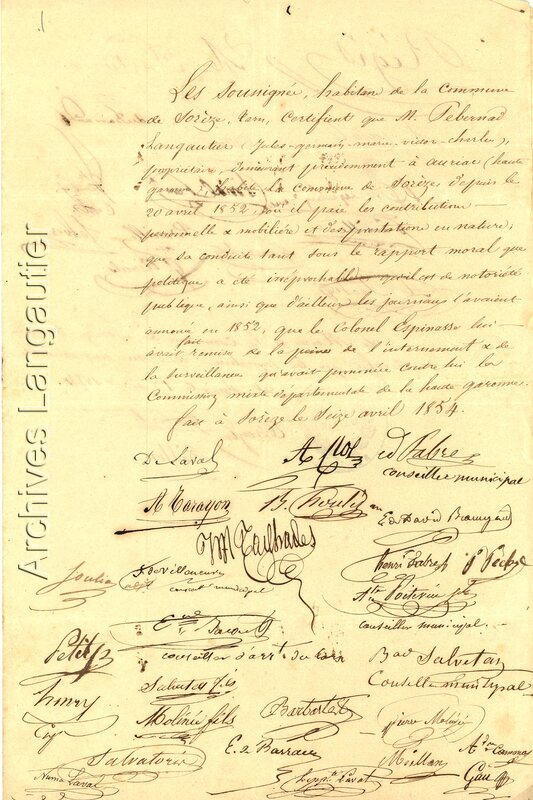 Les soussignée, habitan de la commune
de Sorèze, tarn, Certifients que M. Pebernad
Langautier (jules-germain-marie-victor-charles),
propriétaire, demeurant précédemment à auriac (haute
garonne) habite la commune de Sorèze depuis le
20 avril 1852, ou il paie les contributions
personnelle & mobilière et des prestations en nature;
que sa conduite tant sous le rapport moral que
politique a été inéprochable qu'il est de notoriété
publique, ainsi que d'ailleur les journaux l'avaient
annoncé en 1852, que le Colonel Espinasse lui
avait fait remise de la peines de l'internement & de
la surveillance qu'avait prononcée contre lui la
Commission mixte départementale de la haute garonne.
fait à Sorèze le Seize avril 1854.
De Laval
ed Fabre
conseiller municipal
A Tarayon
B.
E d David
Soulié
de Villeneuve
conseil municipal
henri fabre
Poitevin
conseiller municipal.
Petit
conseiller d'arrt. du tarn
Bad Salvetat
Conseille municipal
Salvetat fils
Molinié fils
Barbaste
pierre Molinié
Salvatoris
E. de Barrau
Milhau
Numa Laval
Hippte Laval
Archives Langautier